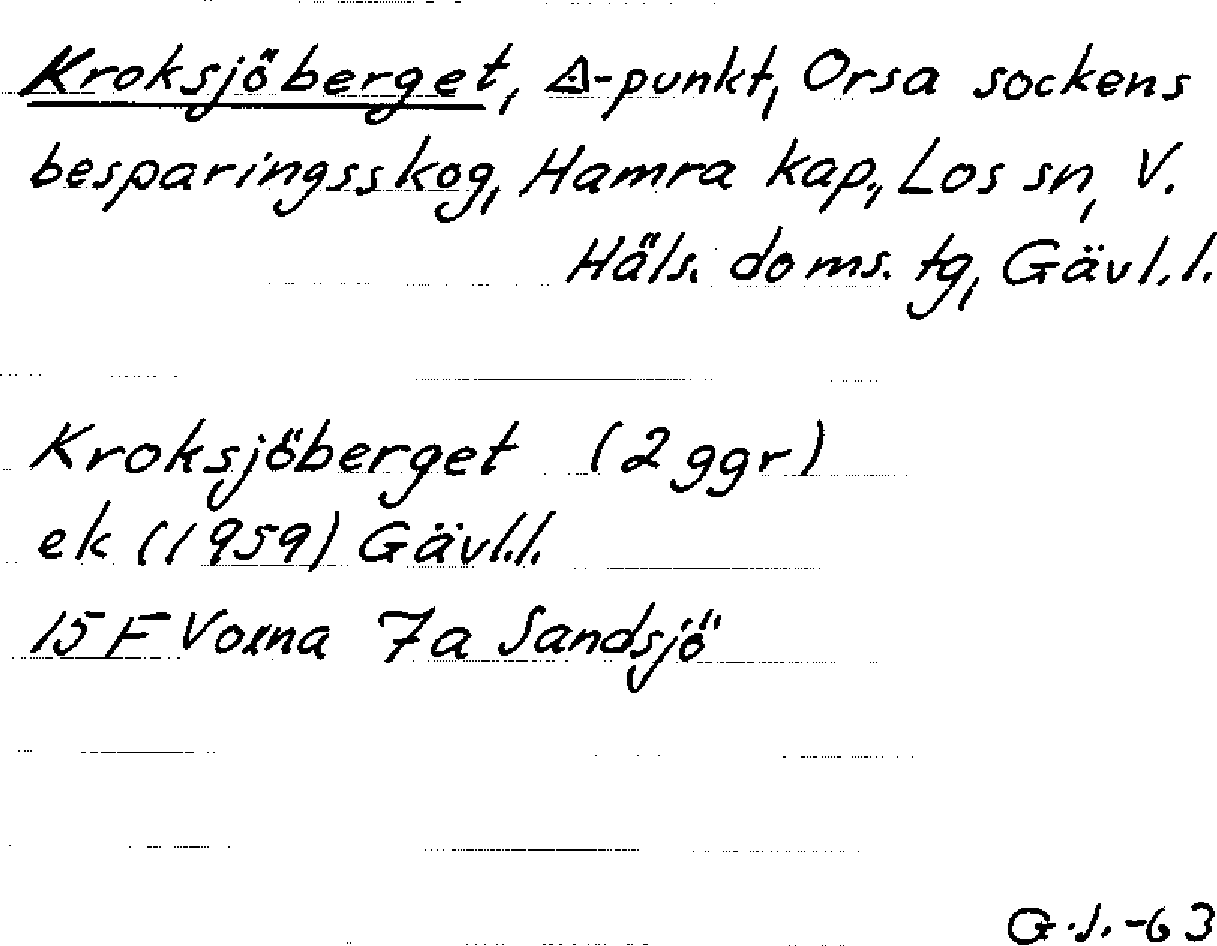 Kroksjöberget, △-punkt, Orsa sockens
besparingsskog, Hamra kap., Los sn, V.
Häls. doms. tg, Gävl.l.
Kroksjöberget (2 ggr)
ek (1959) Gävl.l.
15 F Voxna 7a Sandsjö
G.J.-63